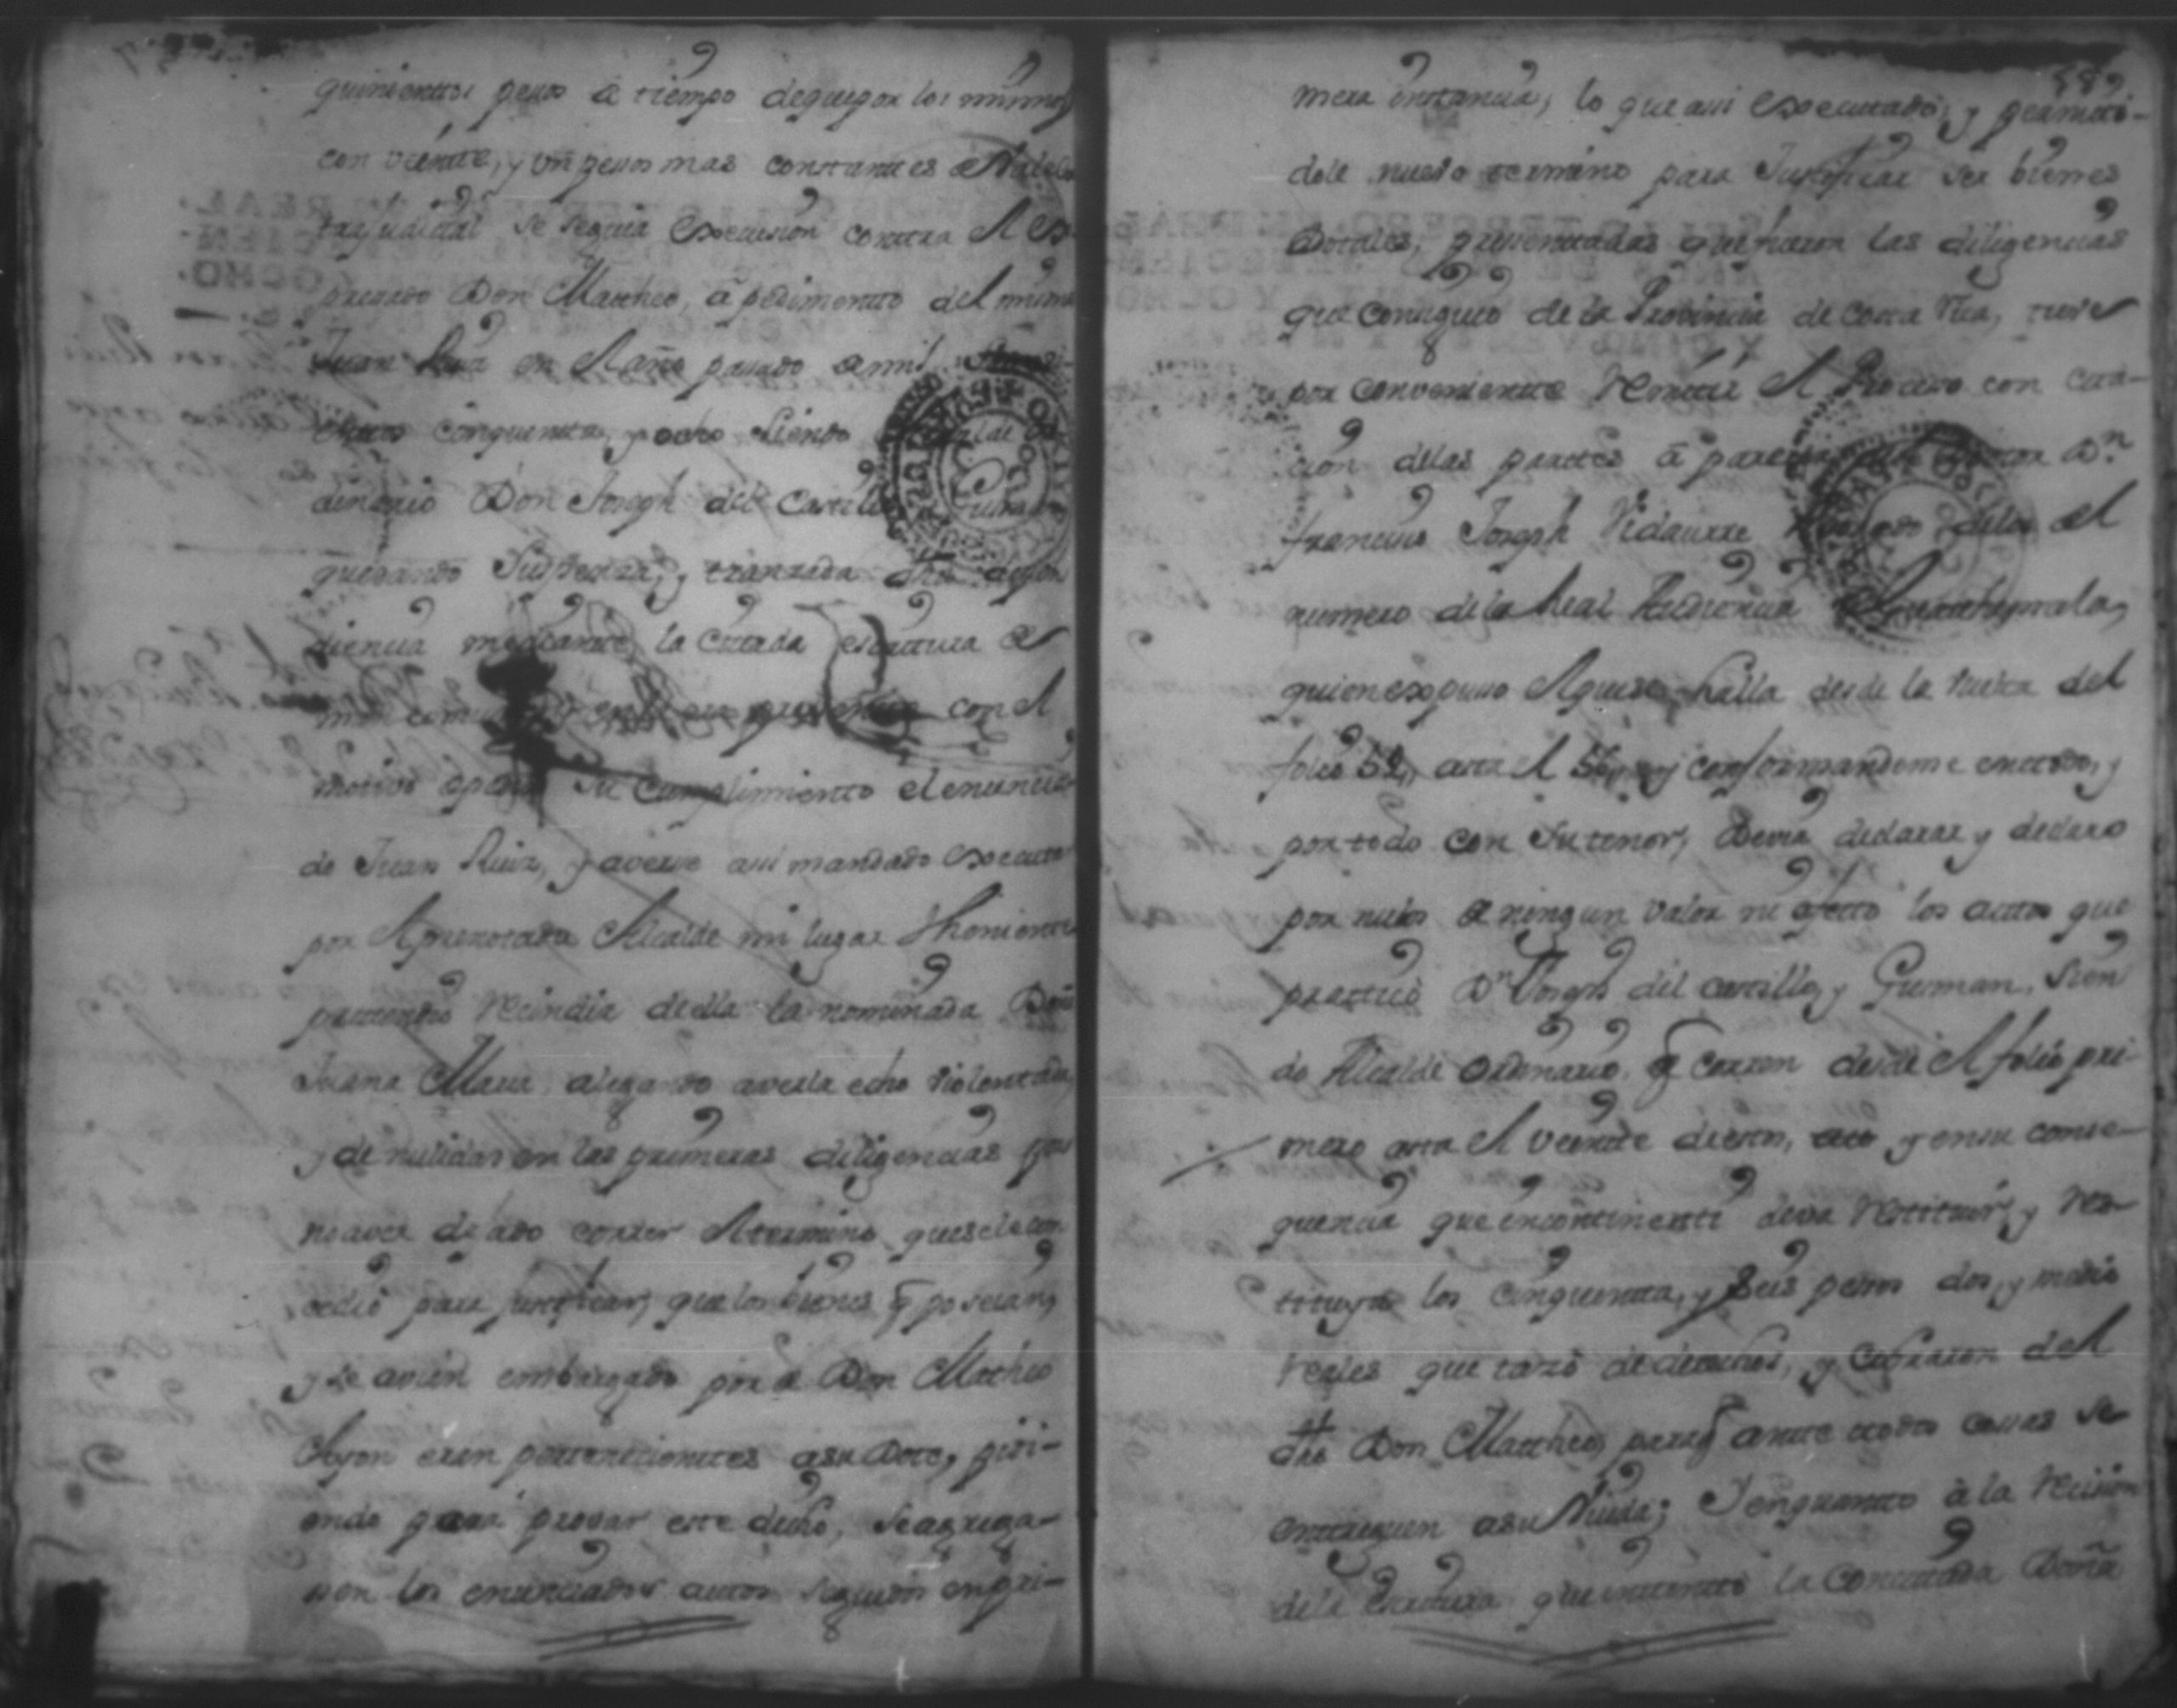 quinientos pesos a tiempo de que por los mismos
con veinte, y un pesos mas constantes
se seguia execusion contra el ex
presado Don Matheo, a pedimento del mismo
Juan Ruiz en el año pasado de mil
cinquenta, y ocho siendo
dinario Don Joseph del Castillo
quedando suspensa, y tranzada dha
diencia mediante la citada escritura de
man con el
motivo su cumplimiento el enuncia
do Juan Ruiz, y averse assi mandado executar
por el prenotado Alcalde mi lugar Theniente
pretendió recindir de ella la nominada Doña
Juana Maria alegando averla echo violentada,
y de nulidad en las primeras diligencias por
no aver dejado correr el termino que se le con
cedió para justificar, que los bienes q poseian,
y se avian embargado por de Don Matheo
Ayon eran pertenecientes a su Dote, pidi-
endo para provar este dicho, se agrega-
sen los enunciados autos seguidos en pri-
889
mera instancia, lo que assi executado, y permiti-
dole nuevo termino para justificar ser bienes
Dotales, presentadas que fueron las diligencias
que consiguió de la Provincia de Costa Rica, tuve
por conveniente remitir el Proceso con cita-
cion de las partes a Dn
Francisco Joseph Vidaurre de los del
numero de la Real Audiencia de Guathemala,
quien expuso el que se halla desde la vuelta del
folio 52, asta el 56 y conformandome en todo, y
por todo con su tenor, Devia declarar y declaro
por nulos de ningun valor ni efecto los autos que
practicó Dn Joseph del Castillo, y Guzman, sien
do Alcalde Ordinario, q corren desde el folio pri-
mero asta el veinte de estos, y en su conse-
quencia que incontinenti deva restituir, y res-
tituya los cinquenta, y seis pesos dos, y medio
reales que tazó de derechos, y cobraron del
dho Don Matheo, para q ante todas cosas se
entreguen a su Viuda; Y en quanto à la recision
de la escritura que intentó la Doña